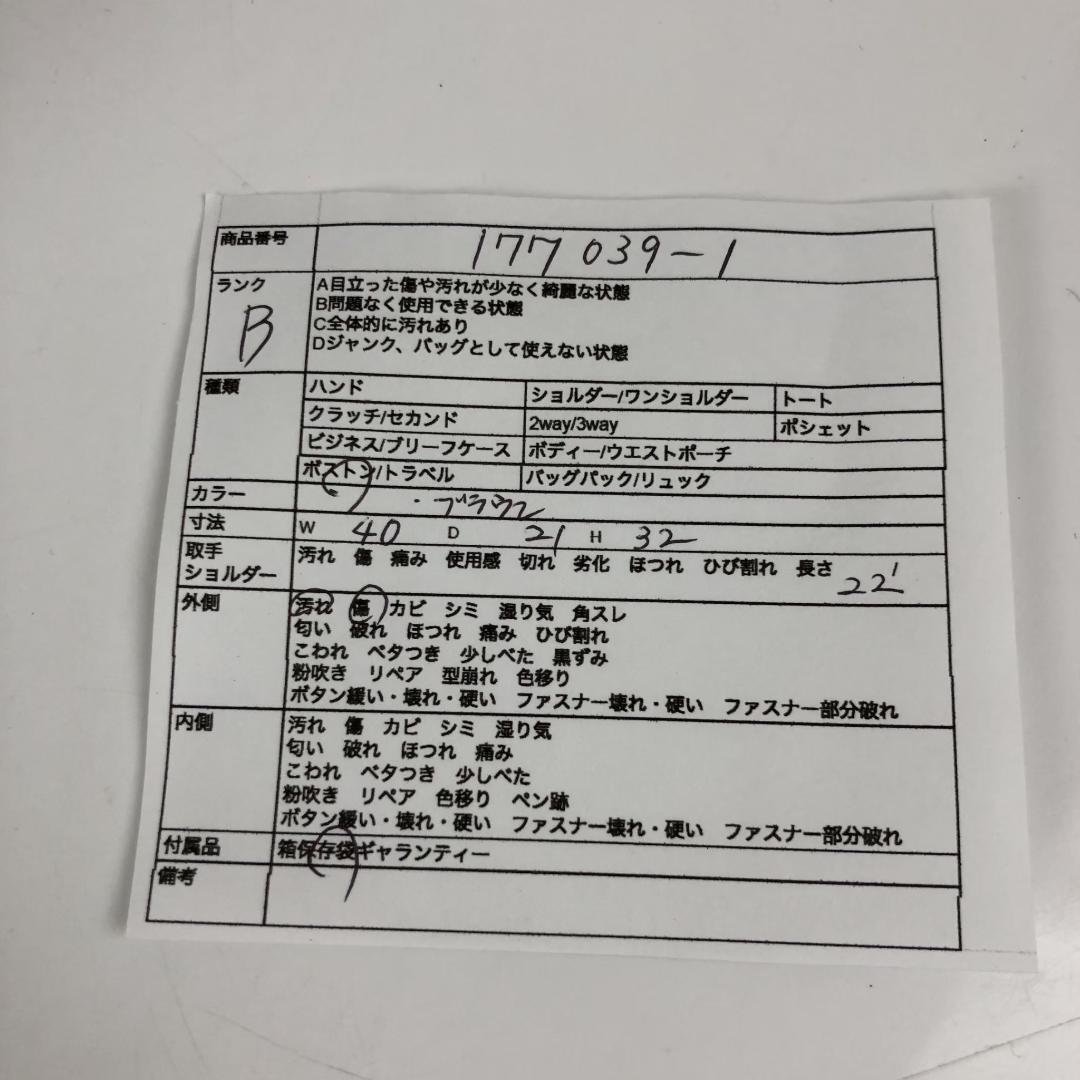 商品番号 177039-1
ランク B
A目立った傷や汚れが少なく綺麗な状態
B問題なく使用できる状態
C全体的に汚れあり
Dジャンク、バッグとして使えない状態
種類 ハンド ショルダー/ワンショルダー トート
クラッチ/セカンド 2way/3way ポシェット
ビジネス/ブリーフケース ボディー/ウエストポーチ
ボストン/トラベル バッグパック/リュック
カラー ブラウン
寸法 W 40 D 21 H 32
取手 汚れ 傷 痛み 使用感 切れ 劣化 ほつれ ひび割れ 長さ 22
ショルダー
外側 汚れ 傷 カビ シミ 湿り気 角スレ
匂い 破れ ほつれ 痛み ひび割れ
こわれ ベタつき 少しべた 黒ずみ
粉吹き リペア 型崩れ 色移り
ボタン緩い・壊れ・硬い ファスナー壊れ・硬い ファスナー部分破れ
内側 汚れ 傷 カビ シミ 湿り気
匂い 破れ ほつれ 痛み
こわれ ベタつき 少しべた
粉吹き リペア 色移り ペン跡
ボタン緩い・壊れ・硬い ファスナー壊れ・硬い ファスナー部分破れ
付属品 箱保存袋ギャランティー
備考